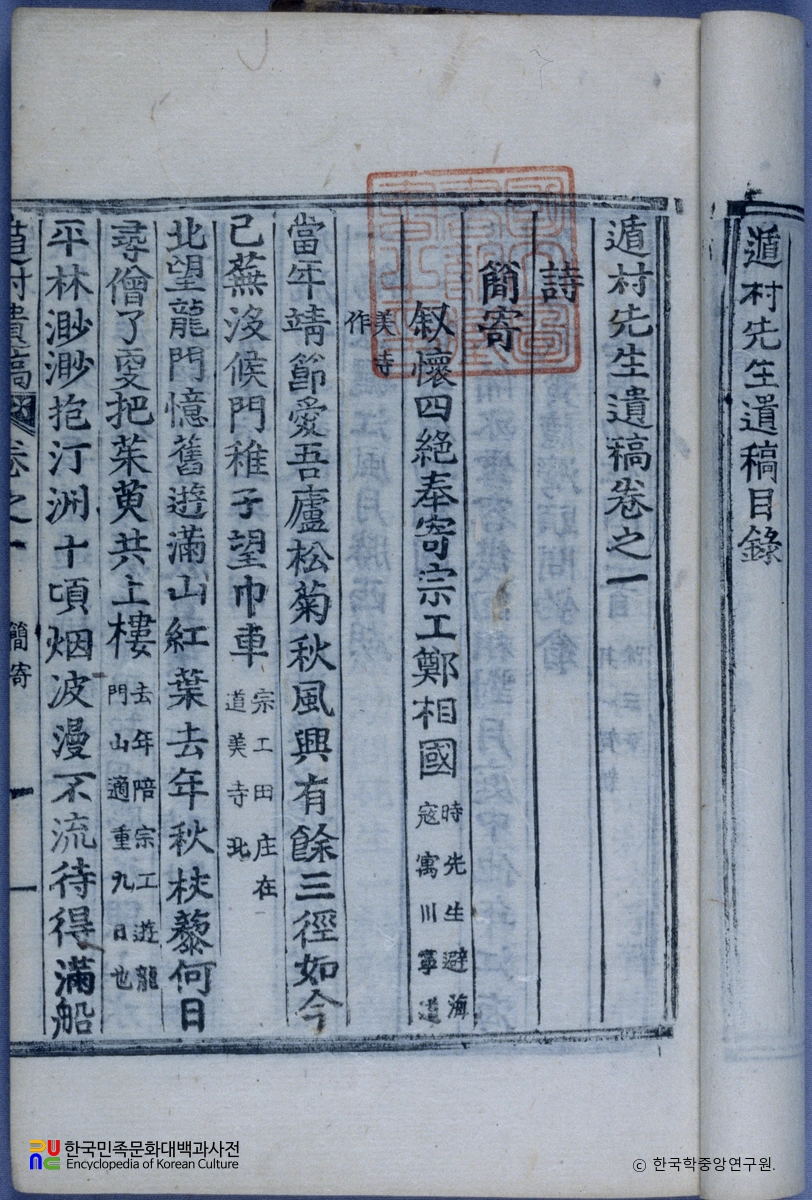 遁村先生遺稿目錄
遁村先生遺稿卷之一
詩
簡寄
叙懷四絶奉寄宗工鄭相國 時先生避海
寇寓川寧道
美寺
作
當年靖節愛吾廬松菊秋風興有餘三徑如今
已蕪沒候門稚子望巾車 宗工田庄在
道美寺北
北望龍門憶舊遊滿山紅葉去年秋杖藜何日
尋僧了更把茱萸共上樓 去年陪宗工遊龍
門山適重九日也
平林渺渺抱汀洲十頃烟波漫不流待得滿船
遁村遺稿 卷之一 簡寄 一
한국민족문화대백과사전
Encyclopedia of Korean Culture
ⓒ 한국학중앙연구원.